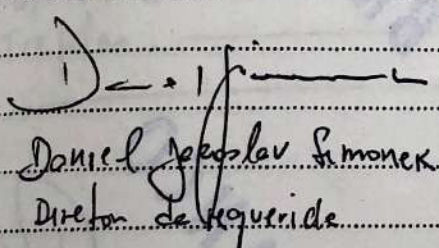 Daniel Jaroslav Simonek
Diretor da requerida